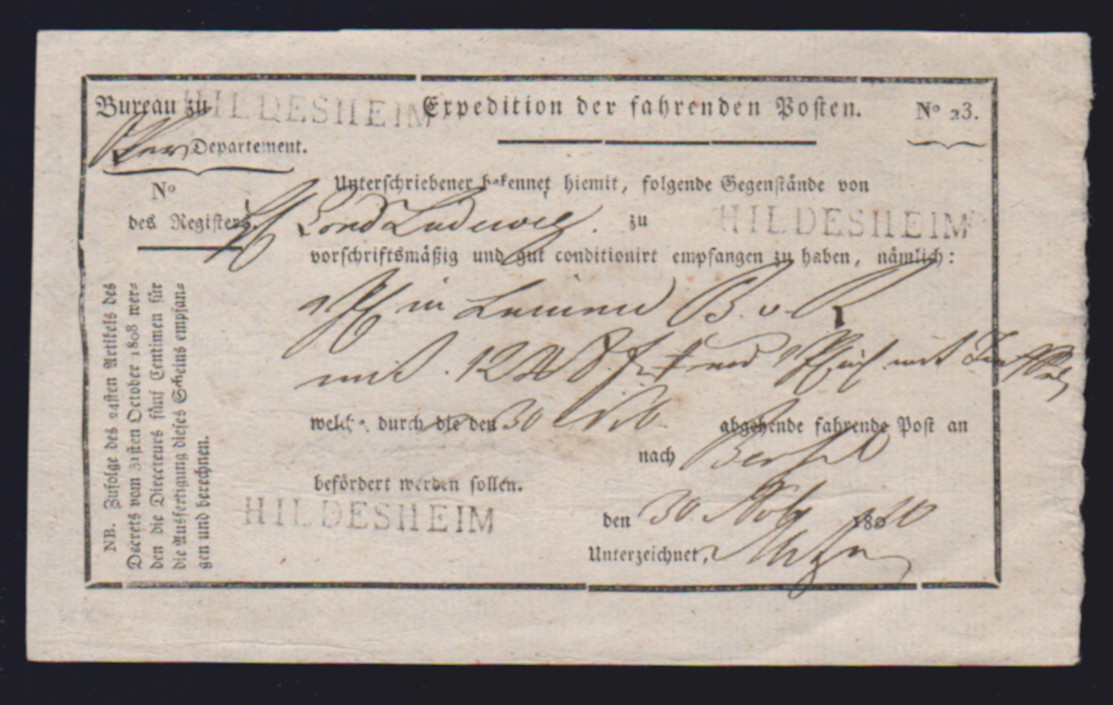 Bureau zu HILDESHEIM Expedition der fahrenden Posten. Nº 23.
Departement.
Nº
des Registers
Unterschriebener bekennet hiemit, folgende Gegenstände von
Ludewig. zu HILDESHEIM
vorschriftsmäßig und gut conditionirt empfangen zu haben, nämlich:
in Leinen B. v. R
mit 1248
welche durch die den 30 abgehende fahrende Post an
nach
befördert werden sollen.
HILDESHEIM
den 30 Nov 1810
Unterzeichnet,
NB. Zufolge des 24sten Artikels des
Decrets vom 31sten October 1808 wer-
den die Directeurs fünf Centimen für
die Ausfertigung dieses Scheins empfan-
gen und berechnen.